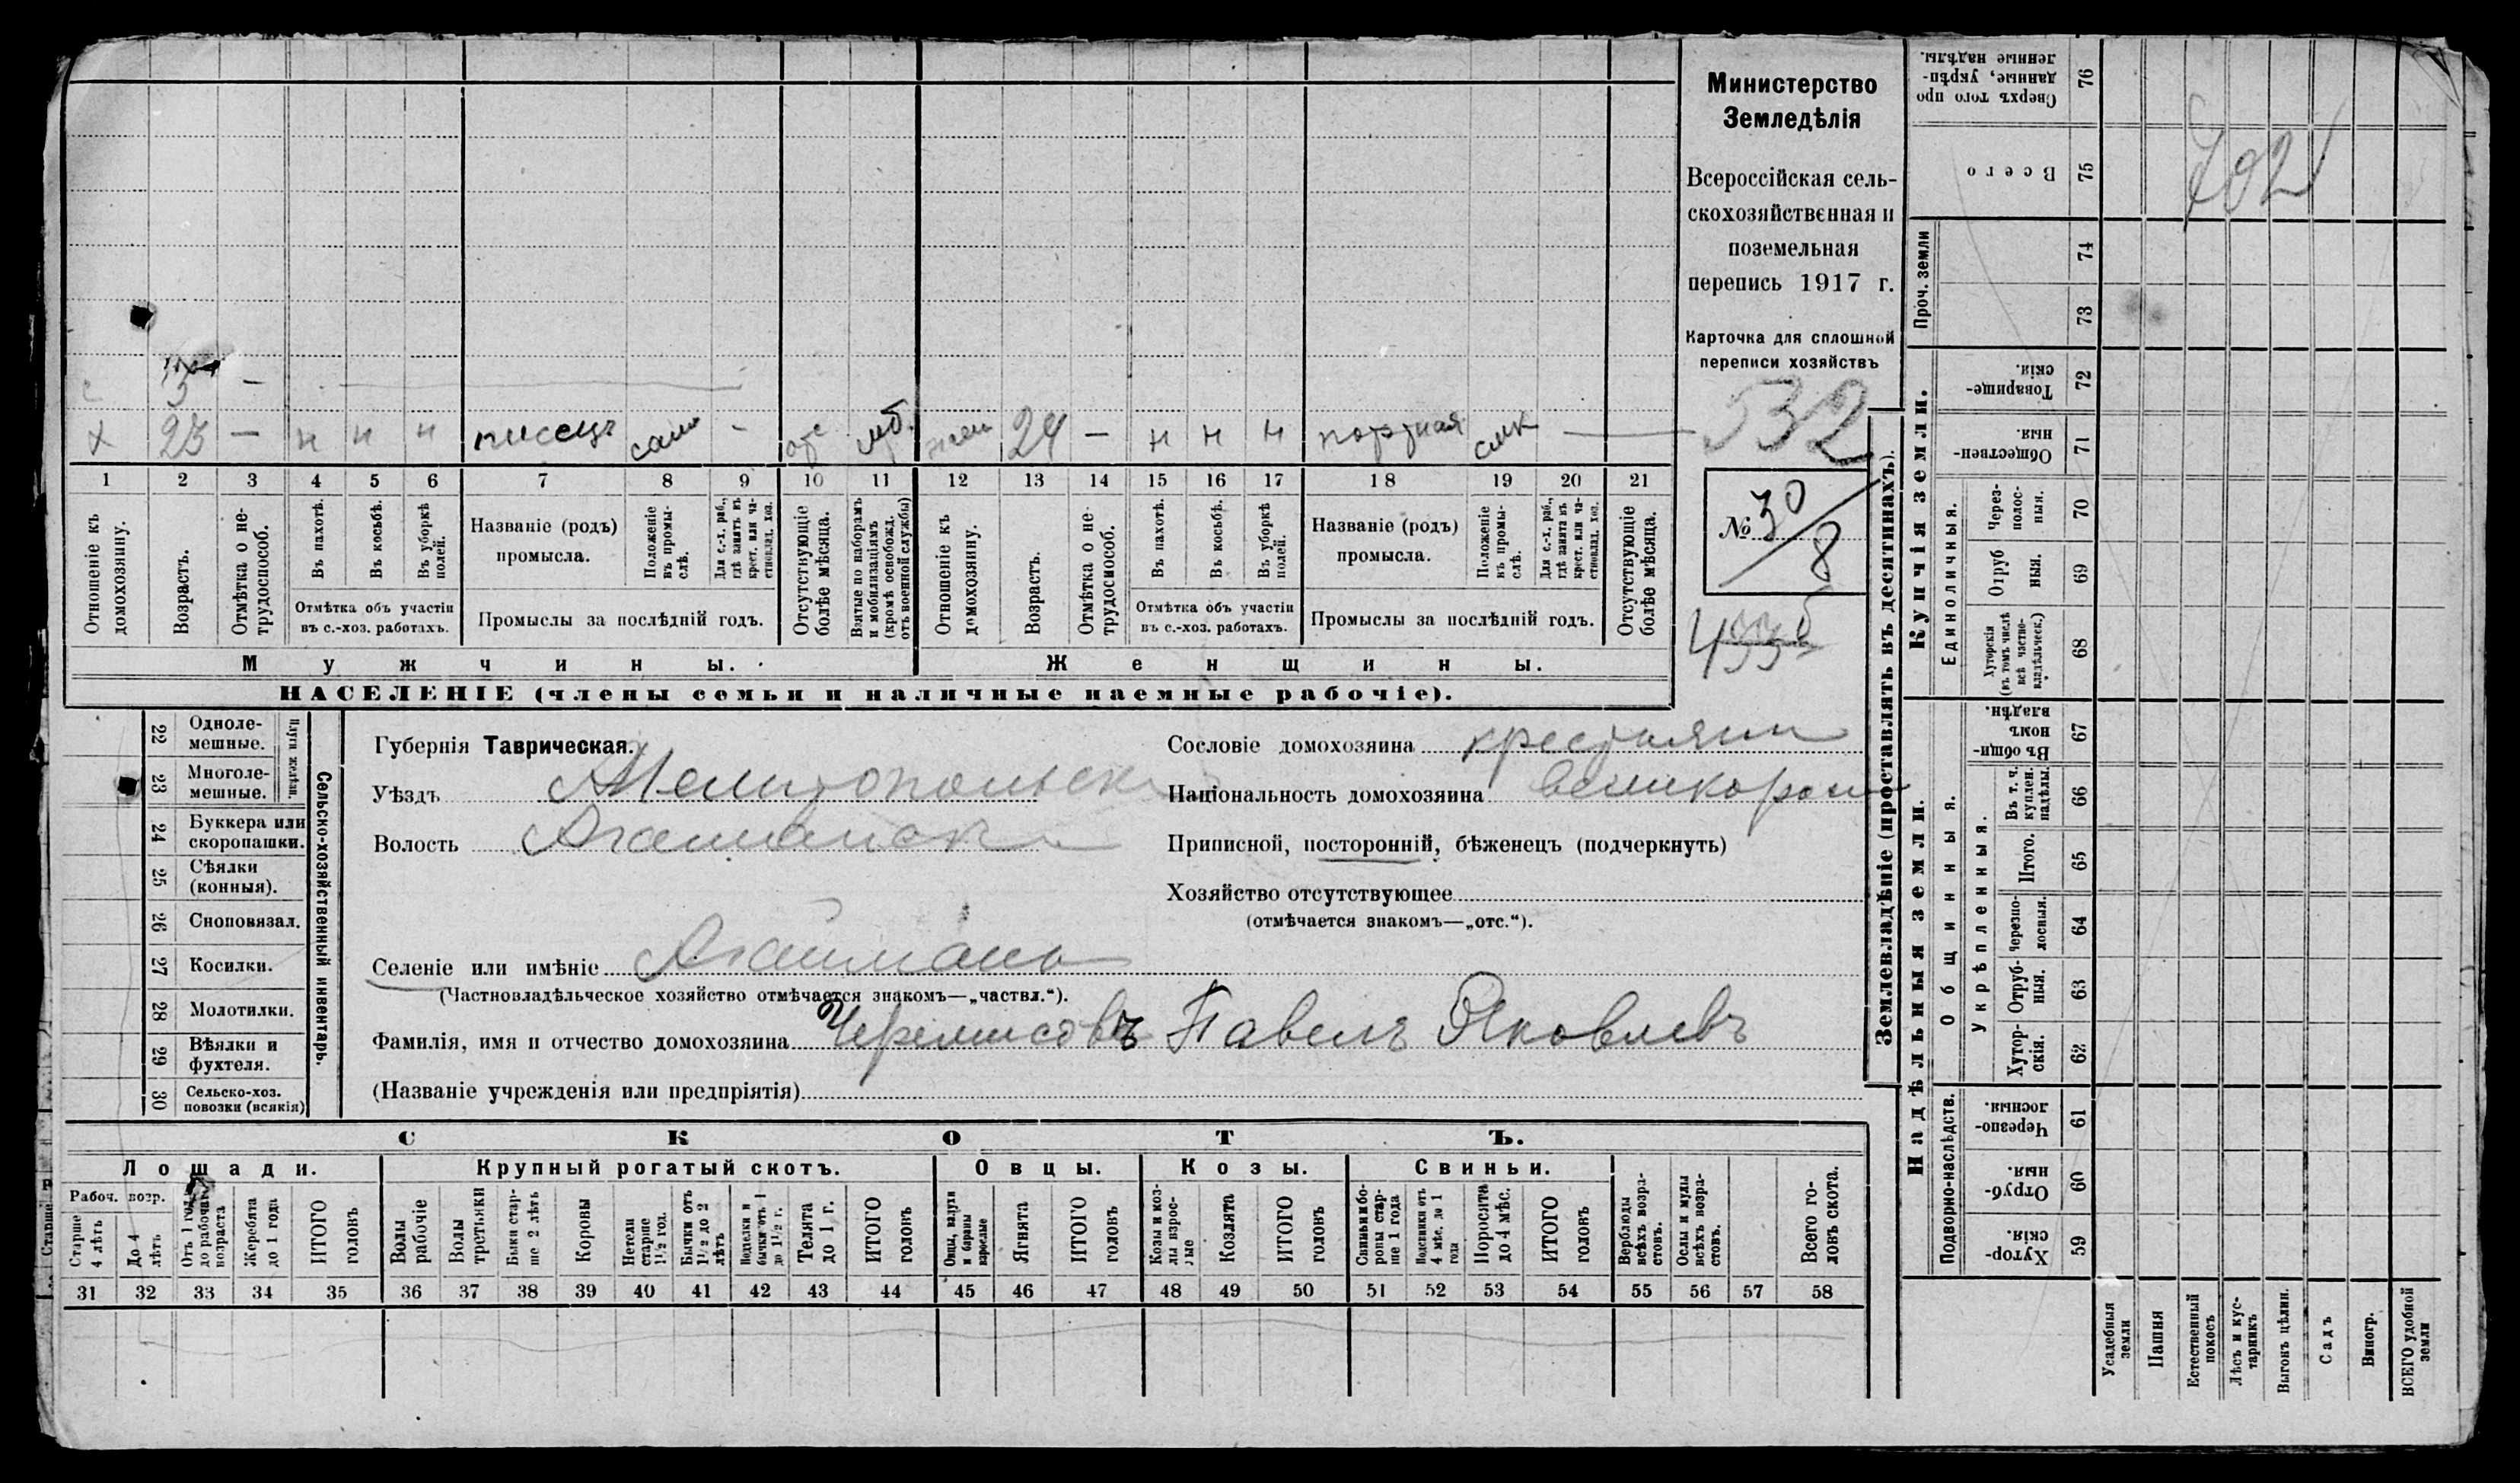 с 5 —
х 23 — н н н писецъ сам — отс моб. жен 24 — н н н портная
1 2 3 4 5 6 7 8 9 10 11 12 13 14 15 16 17 18 19 20 21
Отношеніе къ домохозяину.
Возрастъ.
Отмѣтка о не-
трудоспособ.
Въ пахотѣ.
Въ косьбѣ.
Въ уборкѣ полей.
Отмѣтка объ участіи
въ с.-хоз. работахъ.
Названіе (родъ)
промысла.
Положеніе въ промы-
слѣ.
Для с.-х. раб., гдѣ занятъ въ крест. или ча-
стновлад. хоз.
Промыслы за послѣдній годъ.
Отсутствующіе болѣе мѣсяца.
Взятые по наборамъ и мобилизаціямъ (кромѣ освобожд. отъ военной службы)
Отношеніе къ домохозяину.
Возрастъ.
Отмѣтка о не-
трудоспособ.
Въ пахотѣ.
Въ косьбѣ.
Въ уборкѣ полей.
Отмѣтка объ участіи
въ с.-хоз. работахъ.
Названіе (родъ)
промысла.
Положеніе въ промы-
слѣ.
Для с.-х. раб., гдѣ занята въ крест. или ча-
стновлад. хоз.
Промыслы за послѣдній годъ.
Отсутствующіе болѣе мѣсяца.
Мужчины.
Женщины.
НАСЕЛЕНІЕ (члены семьи и наличные наемные рабочіе).
Министерство
Земледѣлія
Всероссійская сель-
скохозяйственная и
поземельная
перепись 1917 г.
Карточка для сплошной
переписи хозяйствъ
532
№ 30/8
22 Одноле-
мешные.
23 Многоле-
мешные.
Плуги желѣзн.
24 Буккера или
скоропашки.
25 Сѣялки
(конныя).
26 Сноповязал.
27 Косилки.
28 Молотилки.
29 Вѣялки и
фухтеля.
30 Сельско-хоз.
повозки (всякія)
Сельско-хозяйственный инвентарь.
Губернія Таврическая.
Уѣздъ Мелитопольск
Волость Агайманск
Селеніе или имѣніе Агайманъ
(Частновладѣльческое хозяйство отмѣчается знакомъ—„частвл.“).
Фамилія, имя и отчество домохозяина Черемисовъ Павелъ Яковлевъ
(Названіе учрежденія или предпріятія)
Сословіе домохозяина крестьянин
Національность домохозяина великорос
Приписной, посторонній, бѣженецъ (подчеркнуть)
Хозяйство отсутствующее
(отмѣчается знакомъ—„отс.“).
СКОТЪ.
Лошади.
Крупный рогатый скотъ.
Овцы.
Козы.
Свиньи.
Рабоч. возр.
Старше 4 лѣтъ
До 4 лѣтъ
Отъ 1 года до рабочаго возраста
Жеребята до 1 года
ИТОГО головъ
Волы рабочіе
Волы третьяки
Быки стар-
ше 2 лѣтъ
Коровы
Нетели старше 1½ год.
Бычки отъ 1½ до 2 лѣтъ
Подтелки и бычки отъ 1 до 1½ г.
Телята до 1 г.
ИТОГО головъ
Овцы, валухи и бараны взрослые
Ягнята
ИТОГО головъ
Козы и коз-
лы взрос-
лые
Козлята
ИТОГО головъ
Свиньи и бо-
ровы стар-
ше 1 года
Подсвинки отъ 4 мѣс. до 1 года
Поросята до 4 мѣс.
ИТОГО головъ
Верблюды всѣхъ возра-
стовъ.
Ослы и мулы всѣхъ возра-
стовъ.
Всего го-
ловъ скота.
31 32 33 34 35 36 37 38 39 40 41 42 43 44 45 46 47 48 49 50 51 52 53 54 55 56 57 58
Землевладѣніе (проставлять въ десятинахъ).
Сверхъ того про
данные, укрѣп-
ленные надѣлы.
76
Всего
75
Проч. земли
74
73
Купчія земли.
Товарище-
скія.
72
Обществен-
ныя.
71
Единоличныя.
Через-
полос-
ныя.
70
Отруб
ныя.
69
Хуторскія
(въ томъ числѣ
всѣ частно-
владѣльческ.)
68
Надѣльныя земли.
Общинныя.
Въ общи-
номъ
владѣн.
67
Укрѣпленныя.
Въ т. ч.
куплен.
надѣлы.
66
Итого.
65
Черезпо-
лосныя.
64
Отруб-
ныя.
63
Хутор-
скія.
62
Подворно-наслѣдств.
Черезпо-
лосныя.
61
Отруб-
ныя.
60
Хутор-
скія.
59
Усадебныя земли
Пашня
Естественный покосъ
Лѣсъ и кус-
тарникъ
Выгонъ цѣлин.
Садъ
Виногр.
ВСЕГО удобной земли
702